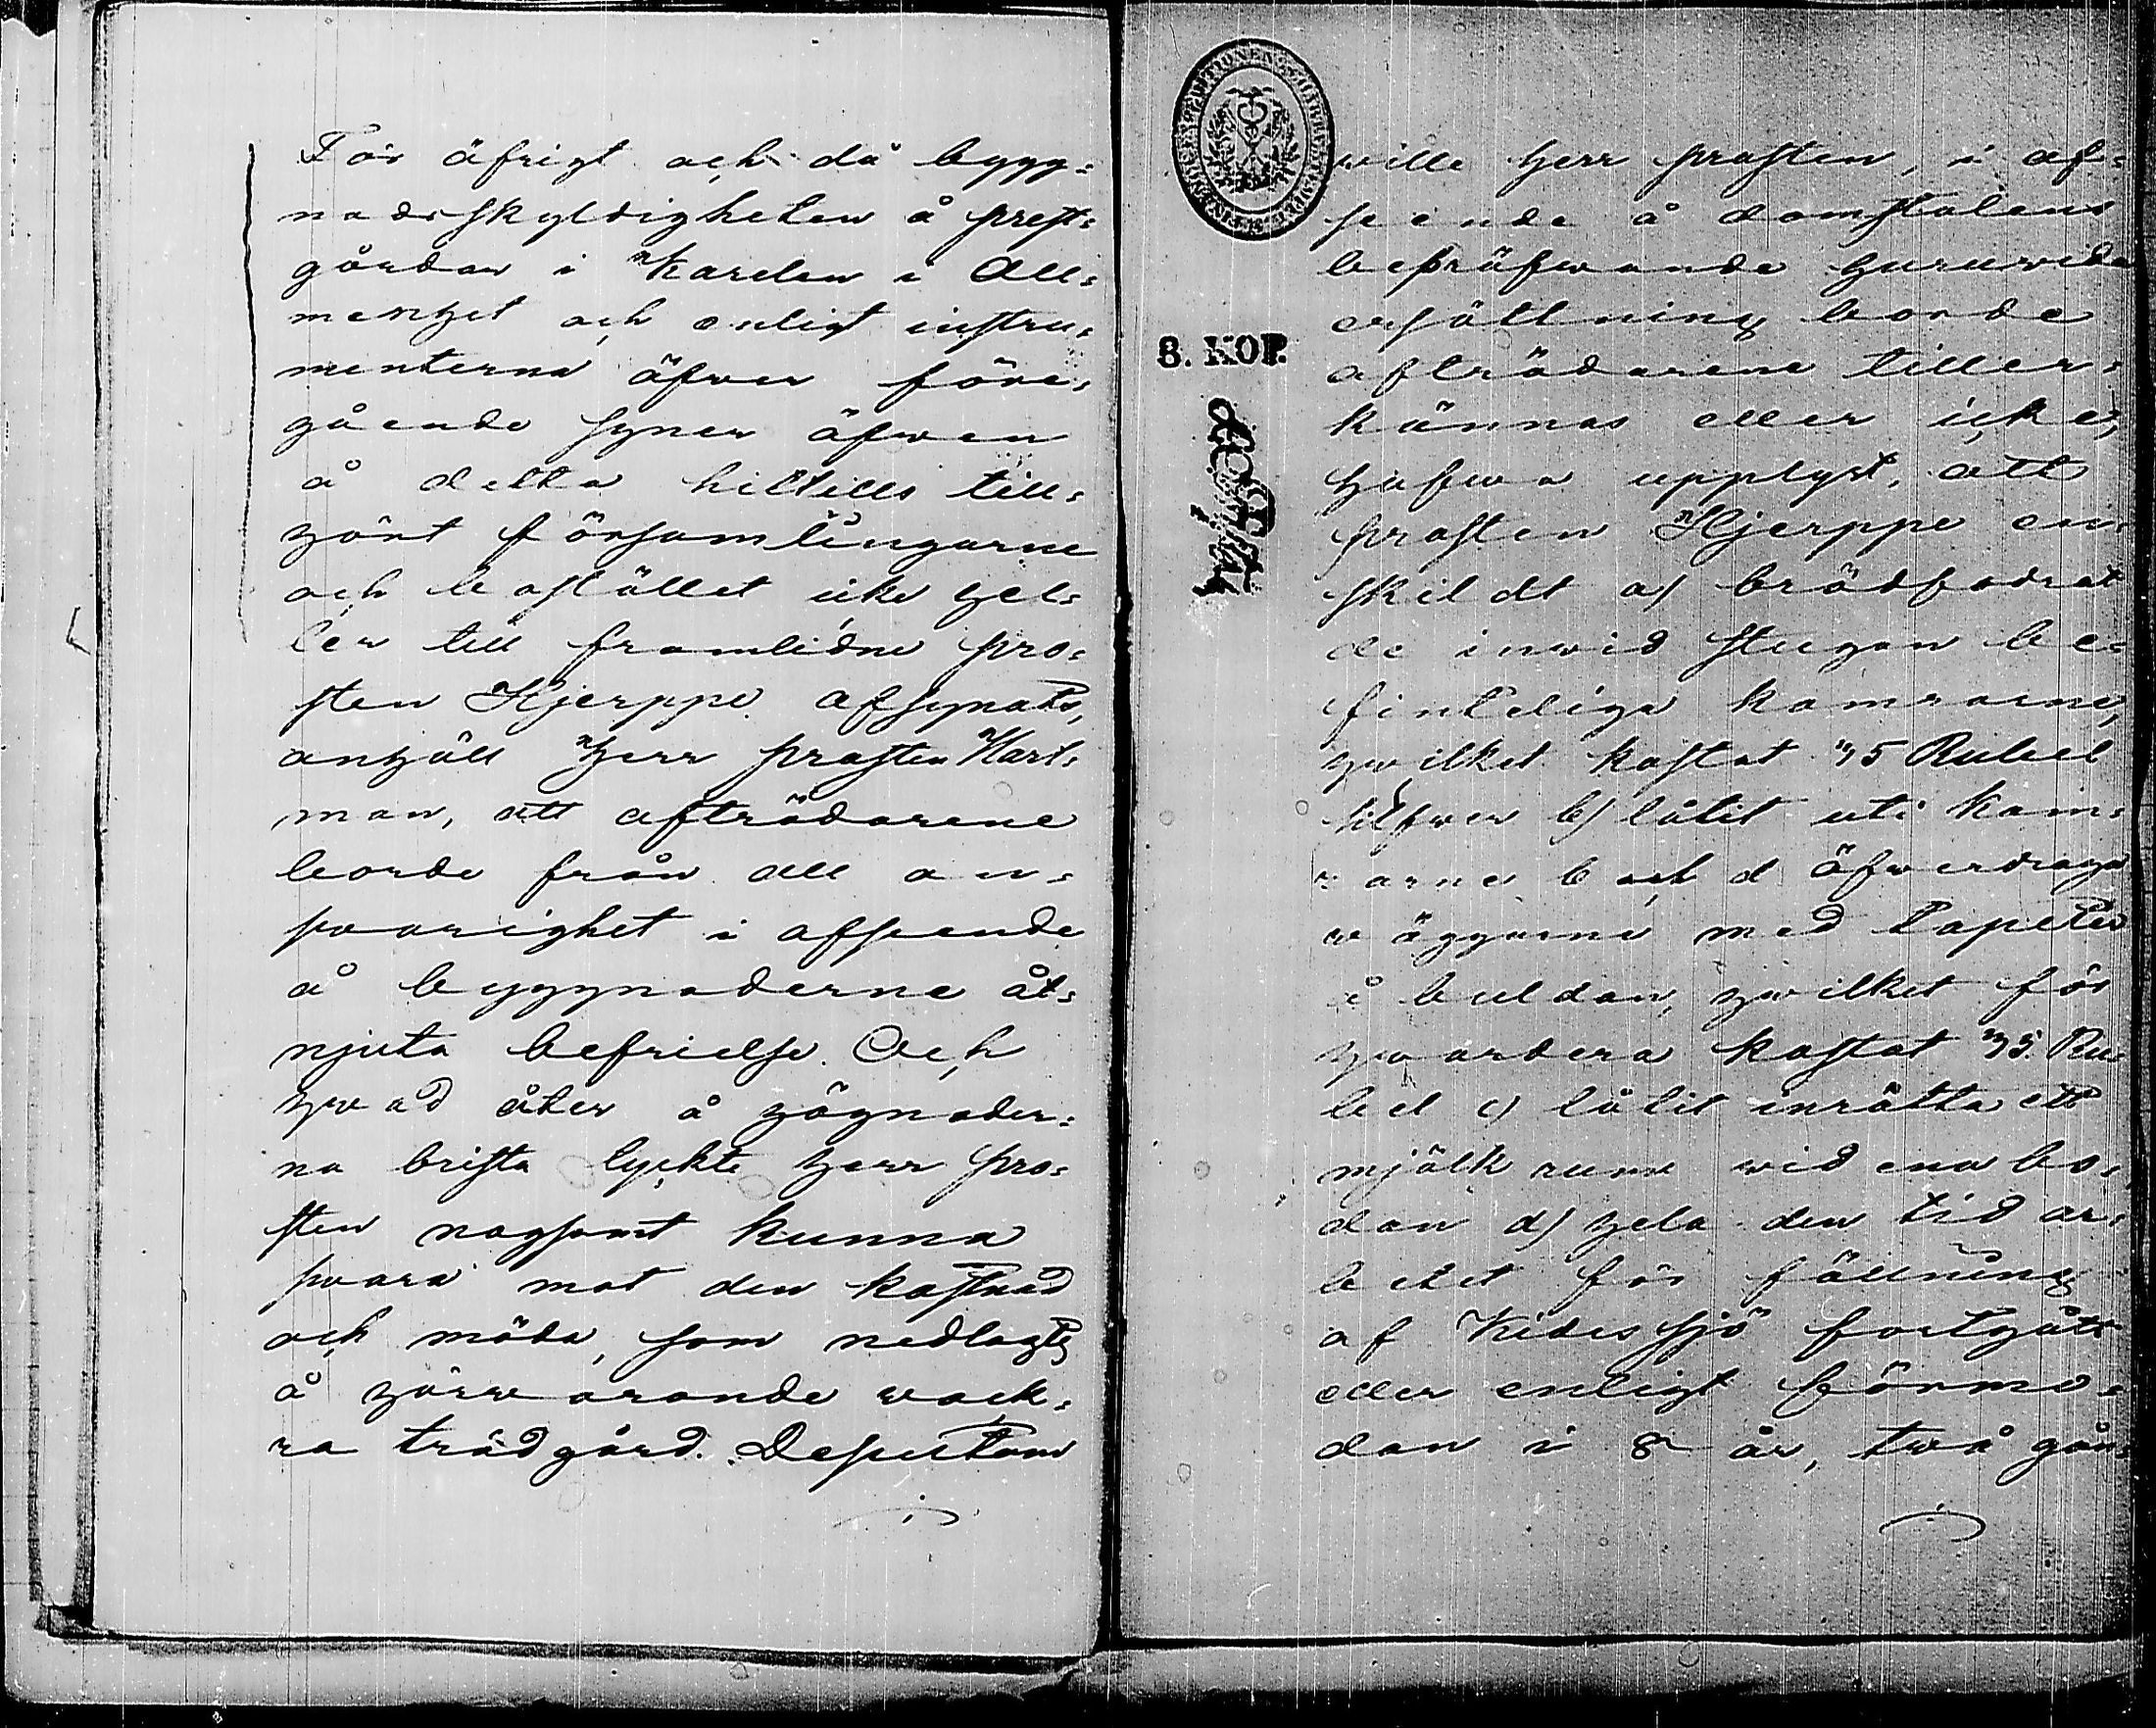 För öfrigt och då bygg=
nadsskyldigheten å prest=
gården i Karelen i All=
menhet och enligt instru=
menterna öfver före=
gående syner äfven
å detta hittills till=
hört församlingarne
och bostället icke hel=
ler till framlidne pro=
sten Hjerppe afsynats,
anhöll Herr prosten Hart=
man, att afträdarene
borde från all an=
svarighet i afseende
å byggnaderne åt=
njuta befrielse. Och
hvad åter å hägnader=
na brista lyckte Herr pro=
sten nogsamt kunna
svara mot den kostnad
och möda, som nedlagts
å härwarande wack=
ra trädgård. Dessutom
wille Herr prosten, i af=
seende å domstolens
bepröfwande huruwida
ersättning borde
afträdarene tiller=
kännas eller icke,
hafwa upplyst, att
prosten Hjerppe en=
skildt a) brädfodrat
de inwid stugan be=
finteliga kamrarne,
hwilket kostat 75 Rubel
silfwer b) låtit uti kam=
rarne b och d öfwerdraga
wäggarne med tapeter
å buldan, hwilket för
hwardera kostat 75 Ru=
bel c) låtit inrätta ett
mjölk rum wid ena bo=
dan d) hela den tid ar=
betet för fällning
af Kides sjö fortgått
eller enligt förmo=
dan i 8 år, twå gån=
8. KOP.